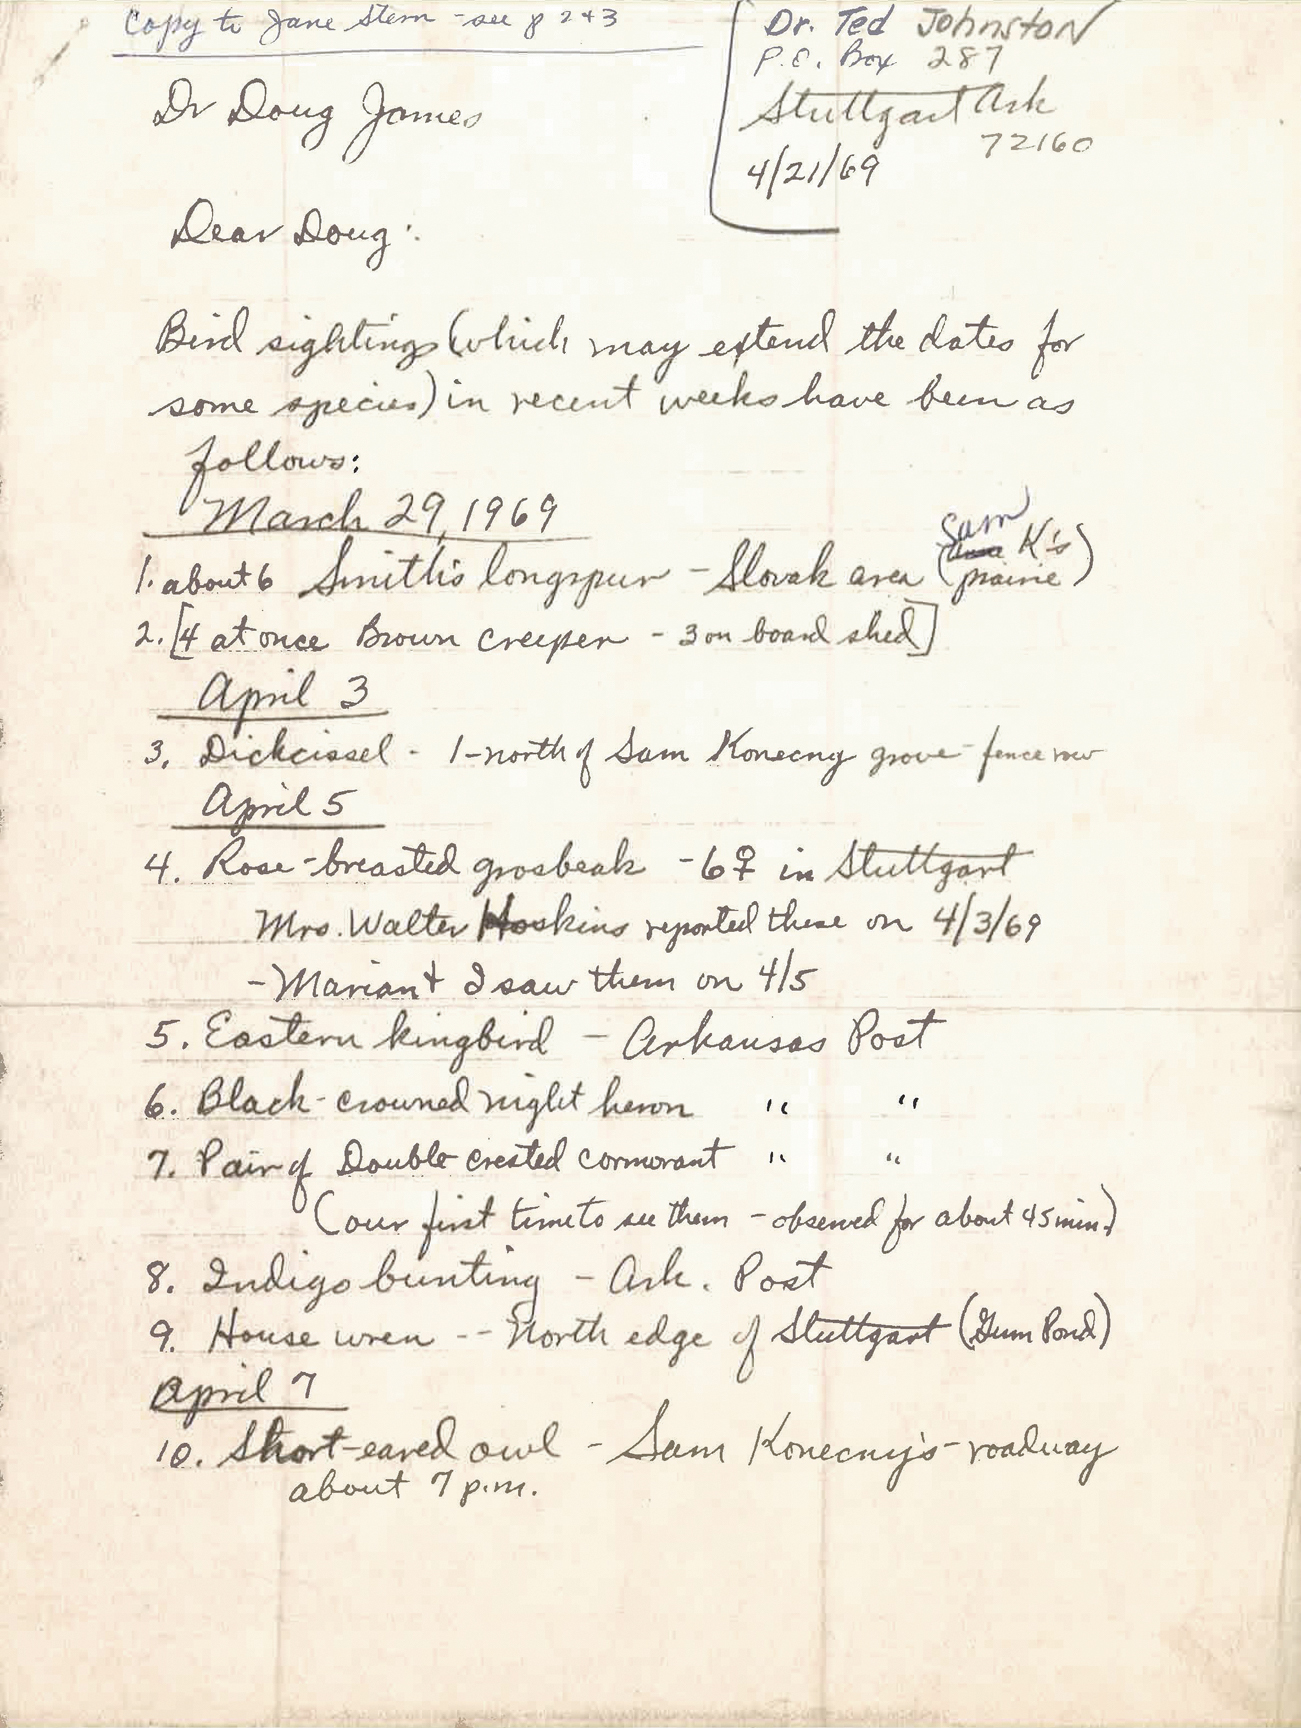 Copy to Jane Stern - see p 2 + 3
Dr. Ted Johnston
P.O. Box 287
Stuttgart Ark
72160
4/21/69
Dr Doug James
Dear Doug:
Bird sightings (which may extend the dates for
some species) in recent weeks have been as
follows:
March 29, 1969
1. about 6 Smith's longspur - Slovak area (Sam K's
prairie)
2. [4 at once Brown creeper - 3 on board shed]
April 3
3. Dickcissel - 1-north of Sam Konecny grove - fence row
April 5
4. Rose-breasted grosbeak - 6♀ in Stuttgart
Mrs. Walter Hoskins reported these on 4/3/69
- Marian + I saw them on 4/5
5. Eastern kingbird - Arkansas Post
6. Black-crowned night heron " "
7. Pair of Double crested cormorant " "
(our first time to see them - observed for about 45 min.)
8. Indigo bunting - Ark. Post
9. House wren -- North edge of Stuttgart (Gum Pond)
April 7
10. Short-eared owl - Sam Konecny's - roadway
about 7 p.m.